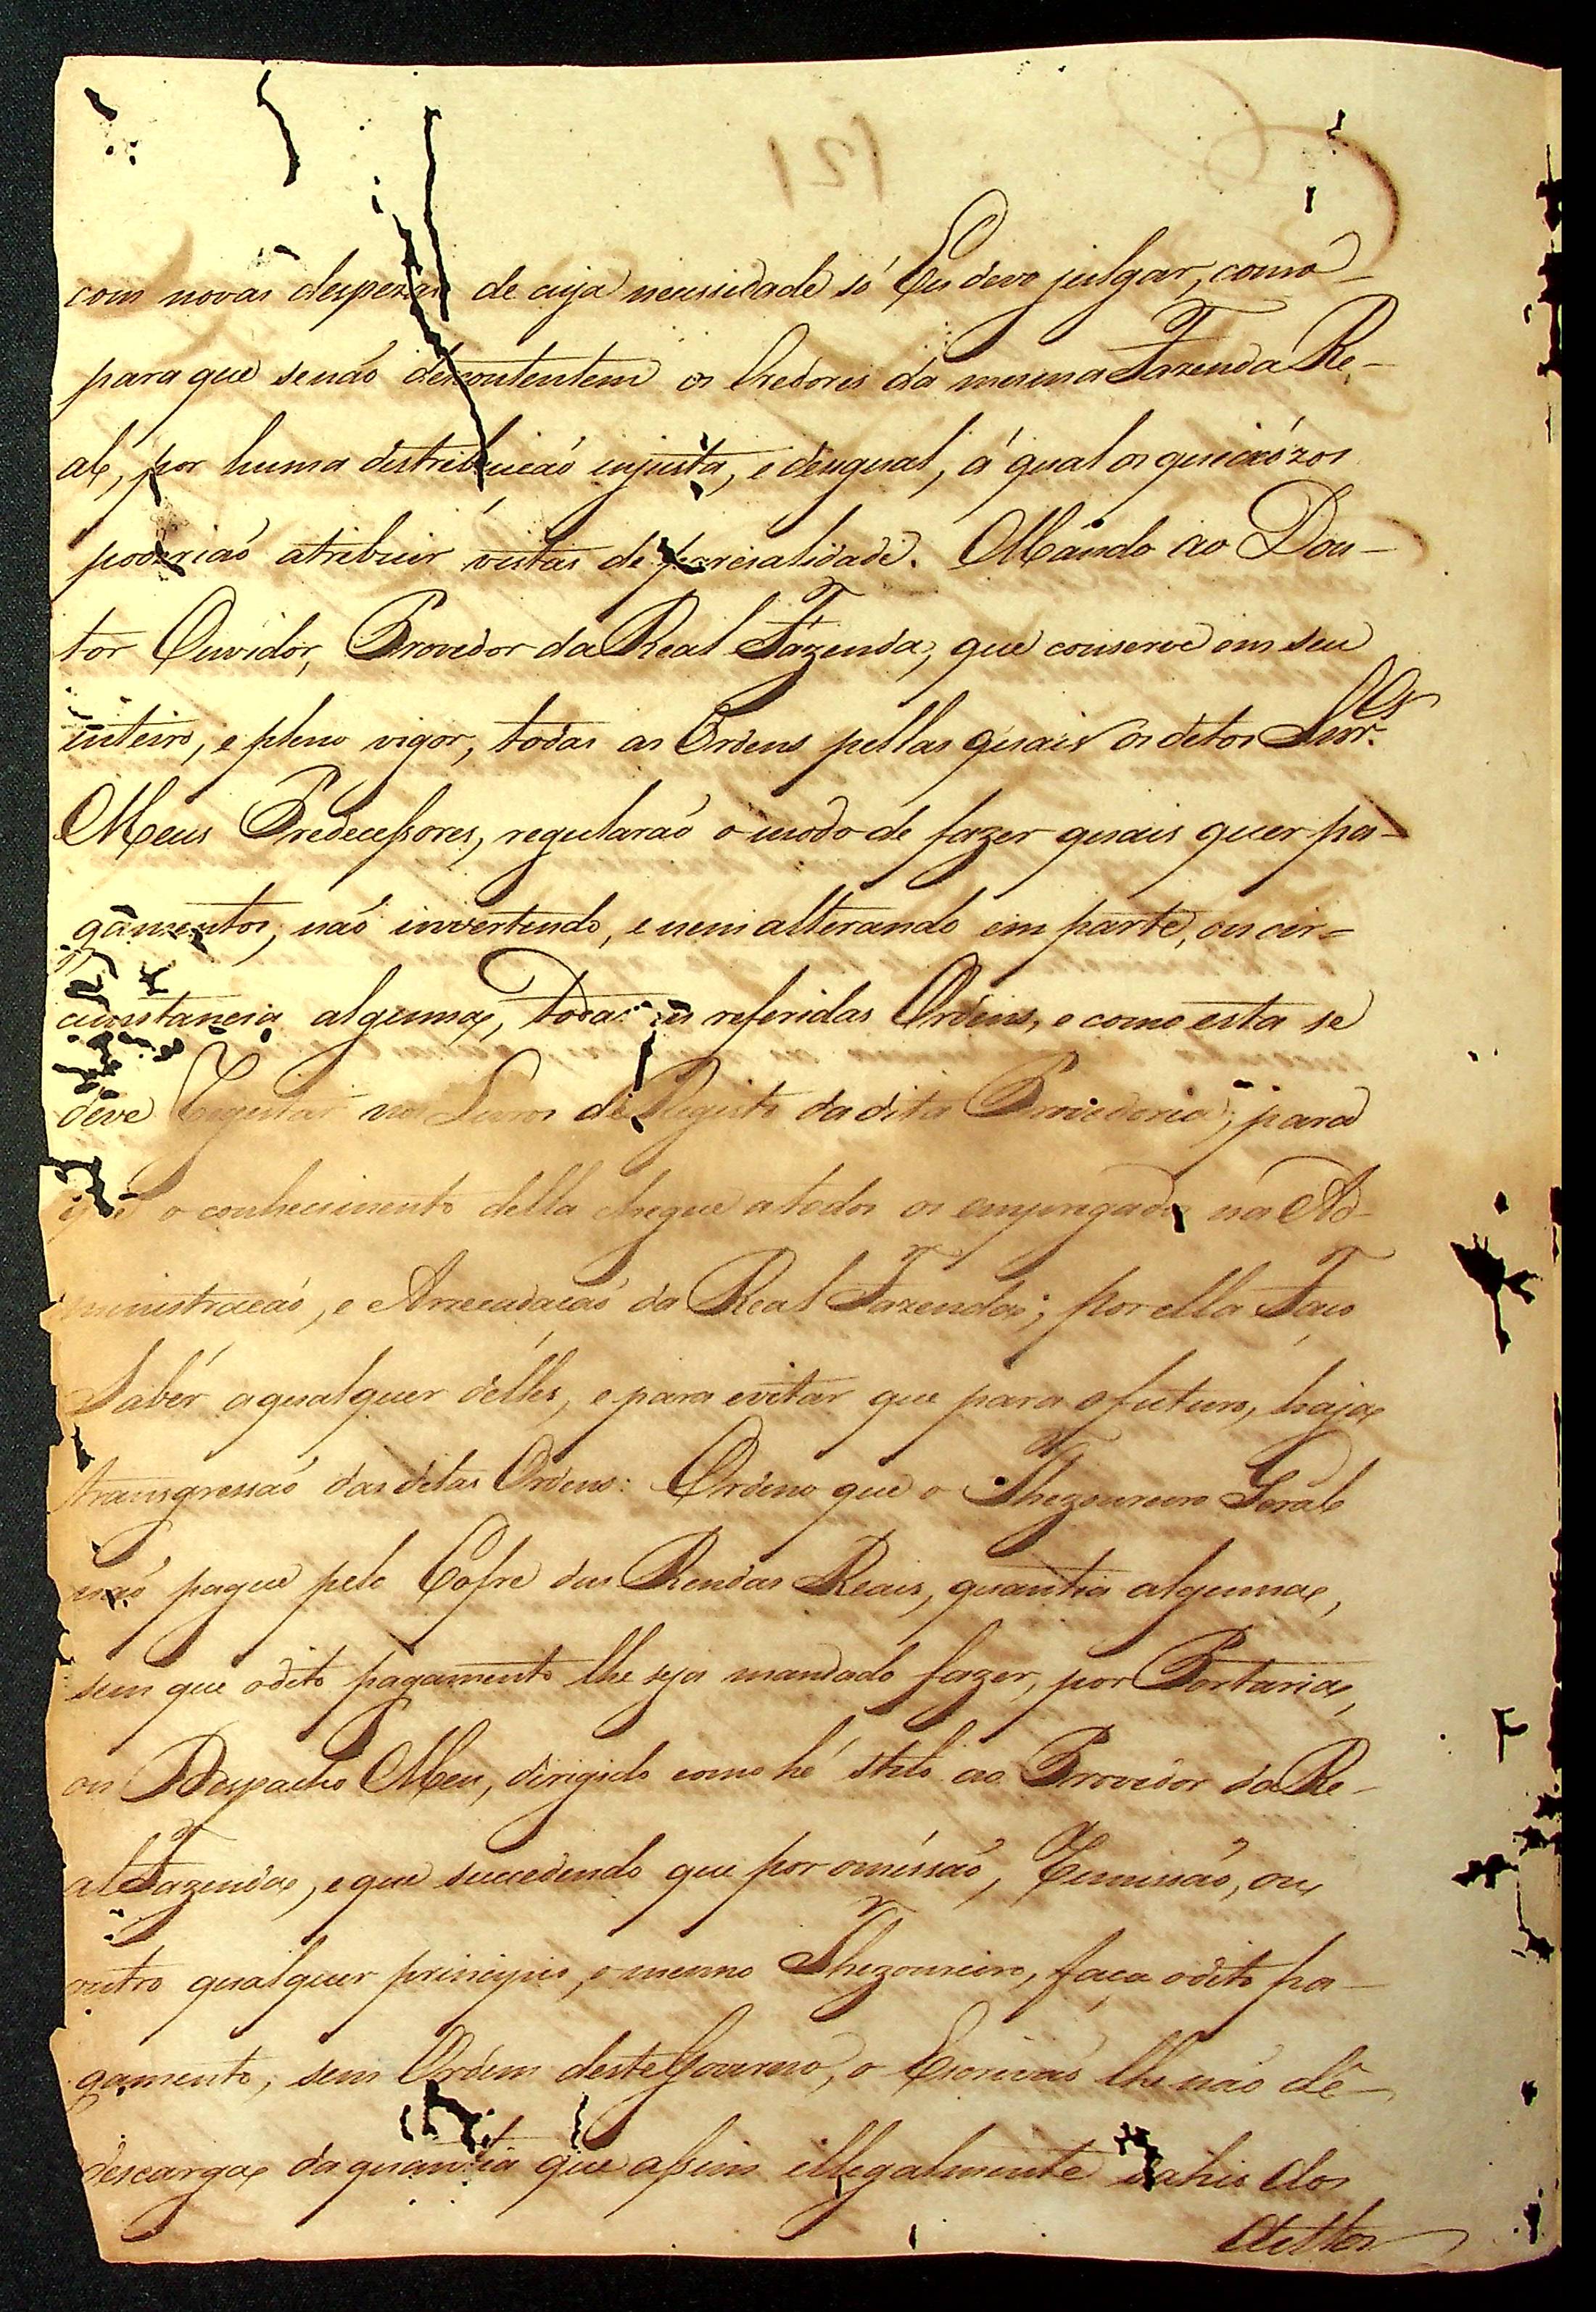 com novas despezas de cuja necessidade só Eu devo julgar, como
para que senaõ descontentem os Credores da mesma Fazenda Re-
al, por huma distribuicaõ injusta, e dezigual, á qual os queixózos
poderiaõ atribuir vistas de parcialidade. Mando ao Dou-
tor Ouvidor, Provedor da Real Fazenda, que conserve em seu
inteiro, e pleno vigor, todas as Ordens pellas quais os ditos Snr.es
Meus Predecessores, regularaõ o modo de fazer quais quer pa-
gamentos, naõ invertendo, e nem alterando em parte, ou cir-
cunstancia alguma, todas as referidas Ordens, e como esta se
deve Registar nos Livros de Registo da dita Provedoria; para
que o conhecimento della chegue a todos os empregados na Ad-
ministracaõ, e Arrecadacaõ da Real Fazenda; por ella Faço
Sabér a qualquer délles, e para evitar que para o futuro, haja
transgressaõ das ditas Ordens: Ordeno que o Thezoureiro Geral
naõ pague pelo Cofre das Rendas Reais, quantia alguma,
sem que o dito pagamento lhe seja mandado fazer, por Portaria,
ou Despacho Meu, dirigido como hé stilo ao Provedor da Re-
al Fazenda, e que succedendo que por omissaõ, Remissaõ, ou
outro qualquer principio, o mesmo Thezoureiro, faça o dito pa-
gamento, sem Ordem deste Governo, o Escrivaõ lhe naõ dê
descarga da quantia que assim illegalmente sahio dos
dittos
121